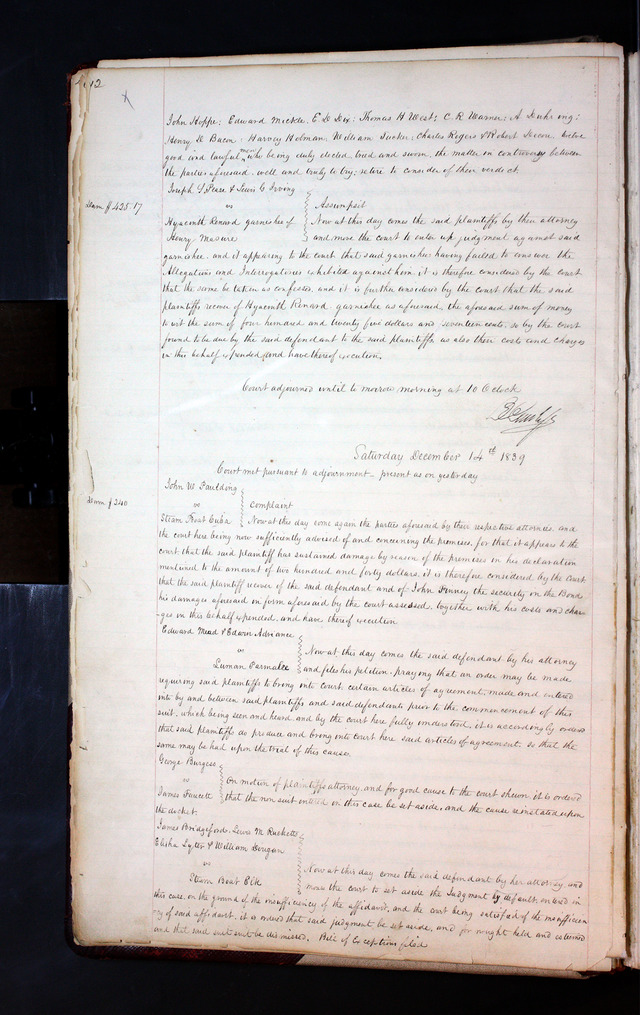 12
John Hoppe; Edward Mickle; E D Dix; Thomas H West; C R Warner; A
Henry D Bacon; Harvey Holman; William Tucker; Charles Rogers & Robert twelve
good and lawful men who being duly elected, tried and sworn, the matter in controversy between
the parties aforesaid, well and truly to try; retire to consider of their verdict.
Joseph S Pease & Lewis C Irving
vs
Assumpsit
Dam $425.17
Hyacinth Renard garnishee of
Henry Masure
Now at this day comes the said plaintiffs by their attorney
and move the court to enter up judgment against said
garnishee. and it appearing to the court that said garnishee having failed to answer the
Allegations and Interrogatories exhibited against him, it is therefore considered by the court
that the same be taken as confessed, and it is further considered by the court that the said
plaintiffs recover of Hyacinth Renard, garnishee as aforesaid, the aforesaid sum of money
to wit the sum of four hundred and twenty five dollars and seventeen cents, so by the court
found to be due by the said defendant to the said plaintiffs as also their costs and charges
in this behalf expended, and have thereof execution.
Court adjourned until to morrow morning at 10 O'clock
Saturday December 14th 1839
Court met pursuant to adjournment - present as on yesterday
John W Paulding
vs
Complaint
Dam $240
Steam Boat Cuba
Now at this day come again the parties aforesaid by their respective attornies, and
the court here being now sufficiently advised of and concerning the premises, for that it appears to the
court that the said plaintiff has sustained damage by reason of the premises in his declaration
mentioned to the amount of two hundred and forty dollars, it is therefore considered by the Court
that the said plaintiff recover of the said defendant and of John Finney the security on the Bond
his damages aforesaid in form aforesaid by the court assessed, together with his costs and char-
-ges in this behalf expended, and have thereof execution
Edward Mead & Edwin Adriance
vs
Luman Parmalee
Now at this day comes the said defendant by his attorney
and files his petition praying that an order may be made
requiring said plaintiffs to bring into court certain articles of agreement, made and entered
into by and between said plaintiffs and said defendants prior to the commencement of this
suit, which being seen and heard and by the court here fully understood, it is accordingly ordered
that said plaintiffs do produce and bring into court here said articles of agreement, so that the
same may be had upon the trial of this cause.
George Burgess
vs
James Faucett
On motion of plaintiffs attorney, and for good cause to the court shewn, it is ordered
that the non suit entered in this case be set aside, and the cause reinstated upon
the docket.
James Bridgeford, Lewis M Ricketts
Elisha Lytle & William Dorigan
vs
Steam Boat Elk
Now at this day comes the said defendant by her attorney, and
move the court to set aside the Judgment by default, entered in
this case, on the ground of the insufficiency of the affidavit, and the court being satisfied of the insufficien
cy of said affidavit, it is ordered that said judgment be set aside, and for nought held and esteemed
and that said suit be dismissed. Bill of Exceptions filed